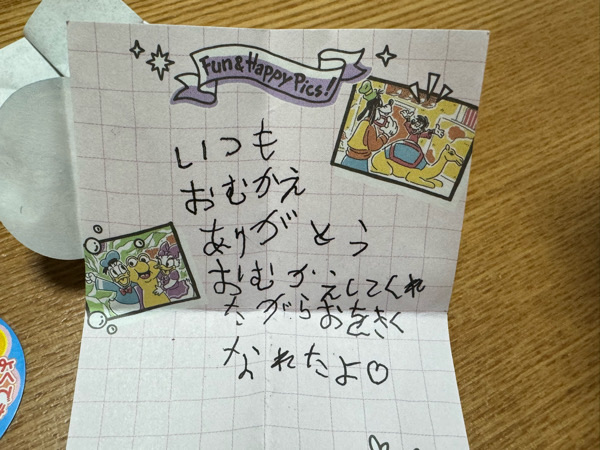 Fun & Happy Pics!
いつも
おむかえ
ありがとう
おむかえしてくれ
たがらおをきく
なれたよ♡